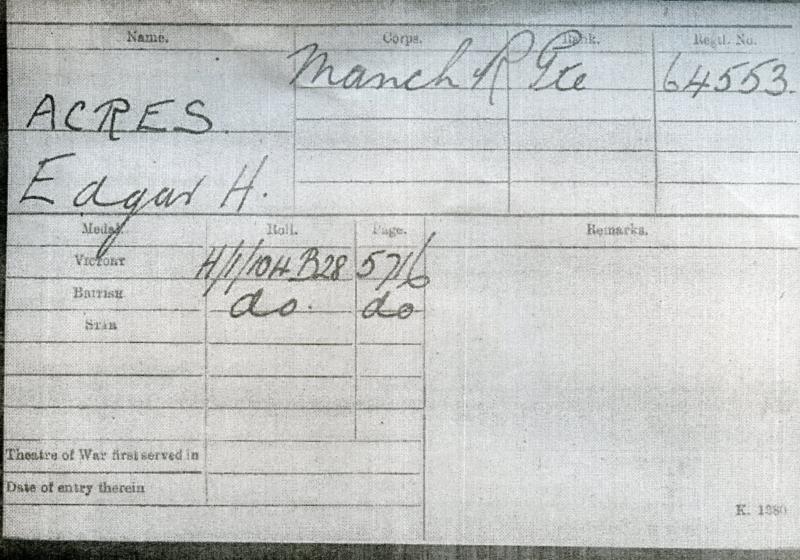 Name. Corps. Rank. Regtl. No.
Manch R Pte 64553.
ACRES.
Edgar H.
Medal. Roll. Page. Remarks.
VICTORY H/1/104 B28 5716
BRITISH do. do
STAR
Theatre of War first served in
Date of entry therein
K. 1380